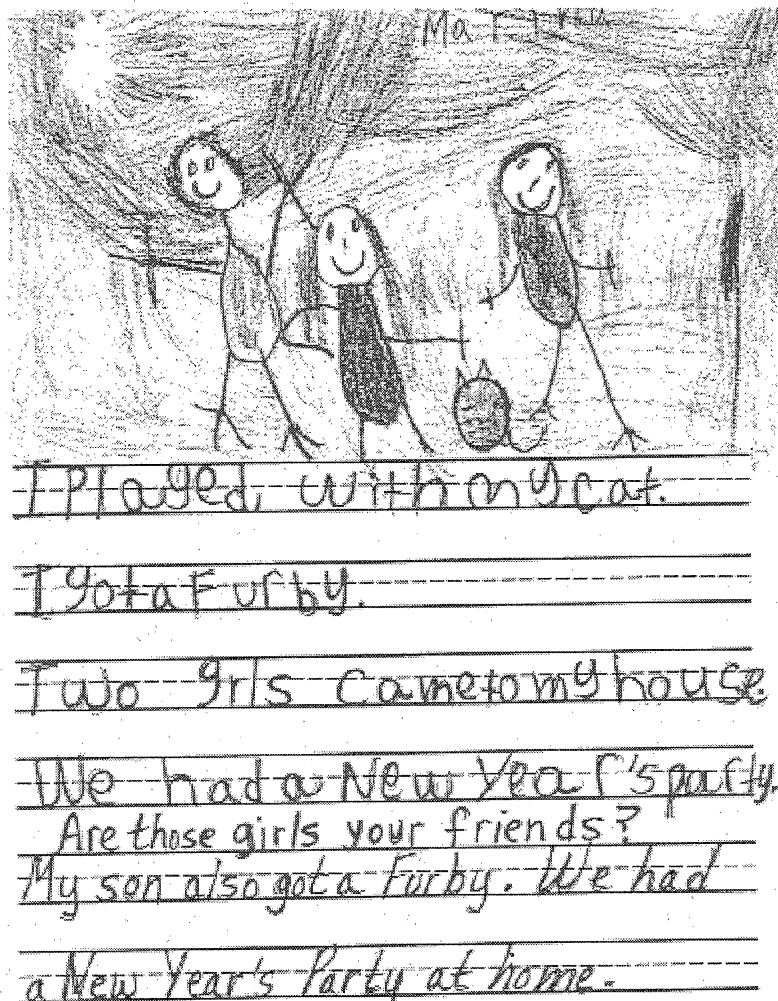 I Played with my cat.
I got a Furby.
Two grls came to my house.
We had a New Year's party.
Are those girls your friends?
My son also got a Furby. We had
a New Year's Party at home.